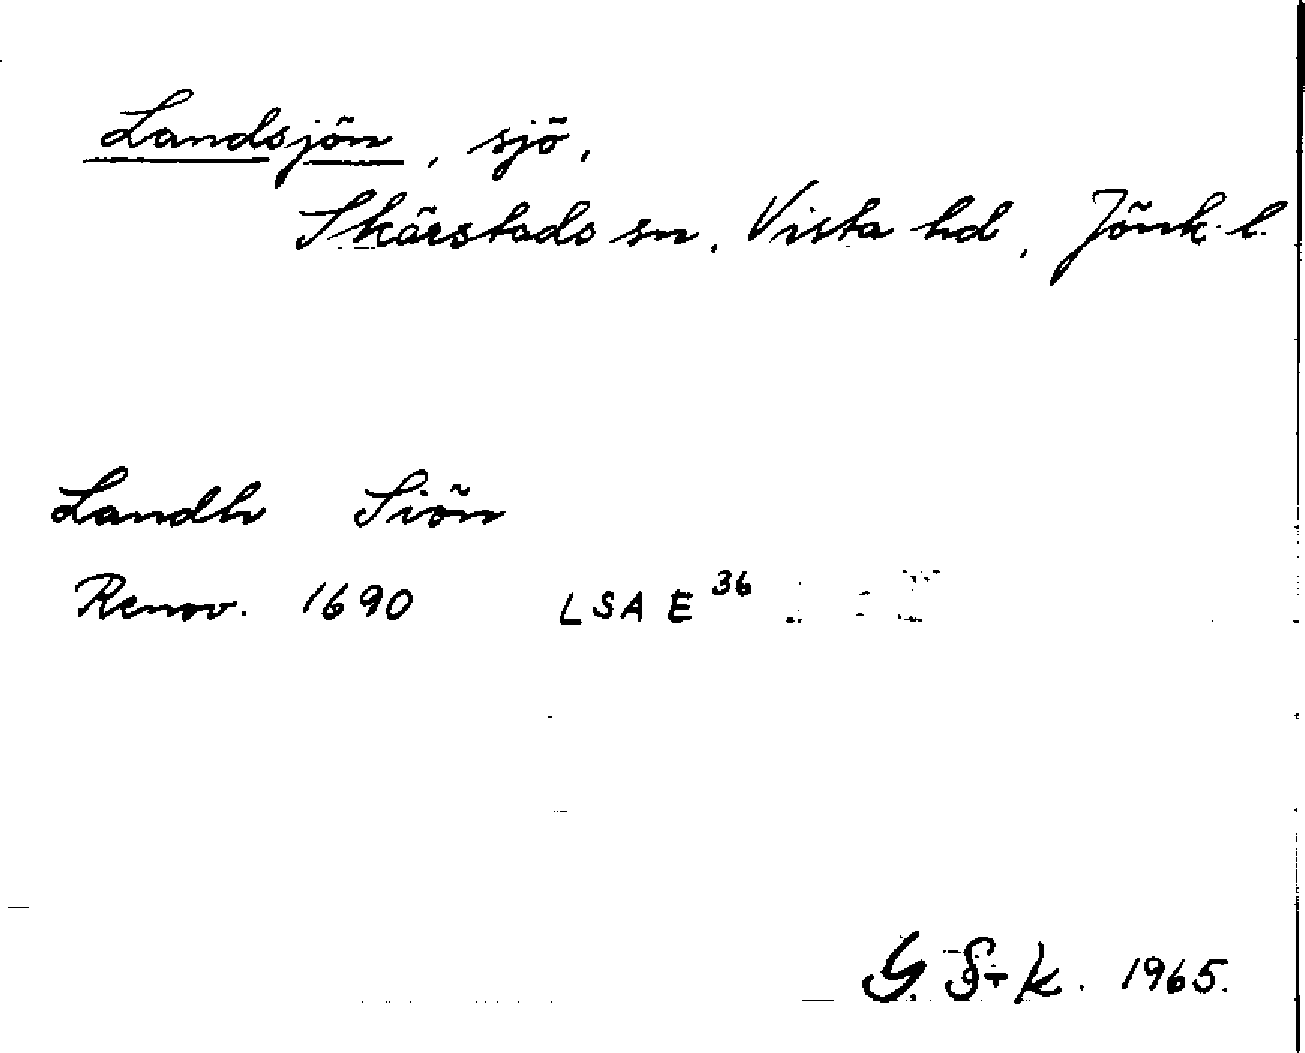 Landsjön, sjö,
Skärstads sn, Vista hd, Jönk. l.
Landh Siön
Renov. 1690 LSA E 36
G. F-k. 1965.